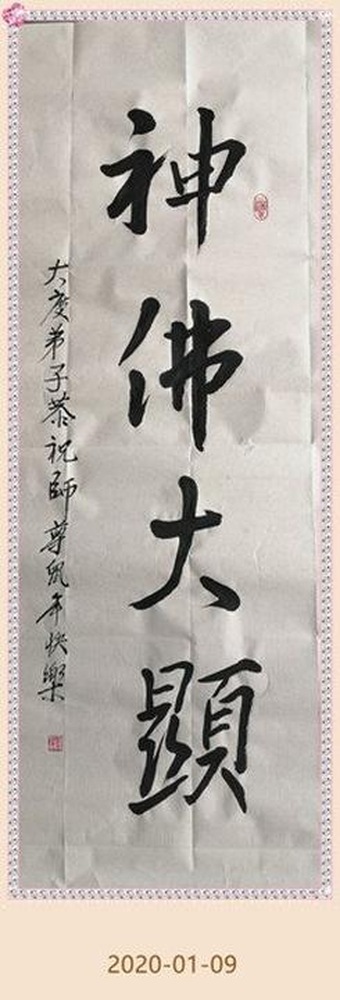 神佛大顯
大度弟子恭祝師尊鼠年快樂
2020-01-09